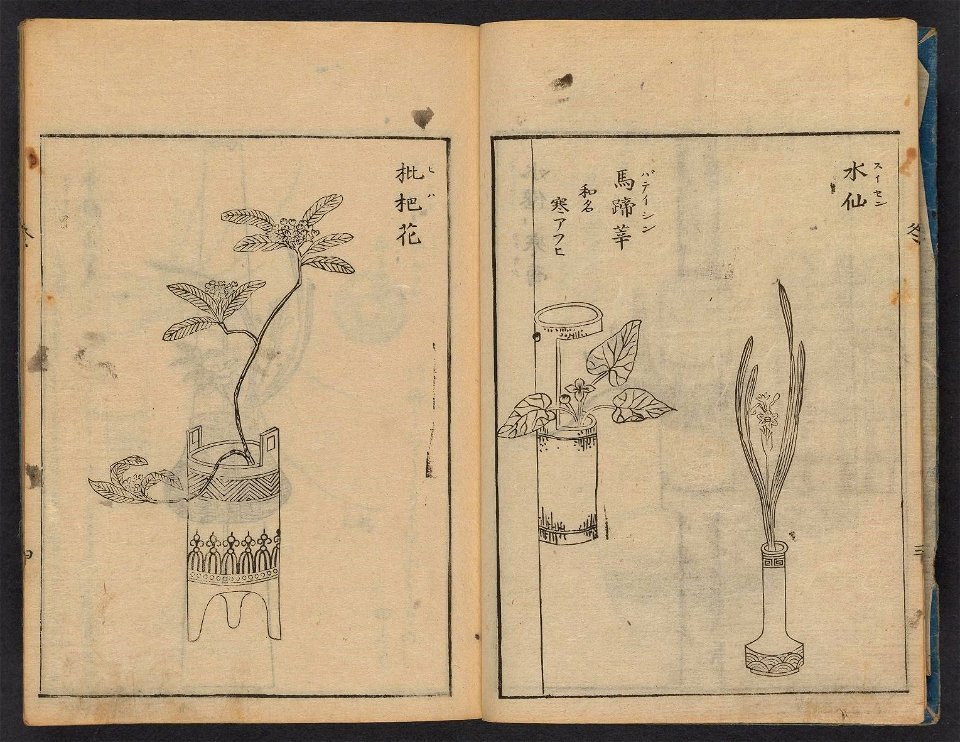 水仙
スイセン
馬蹄莘
バテイシン
和名
寒アフヒ
枇杷花
ヒハ
冬
三